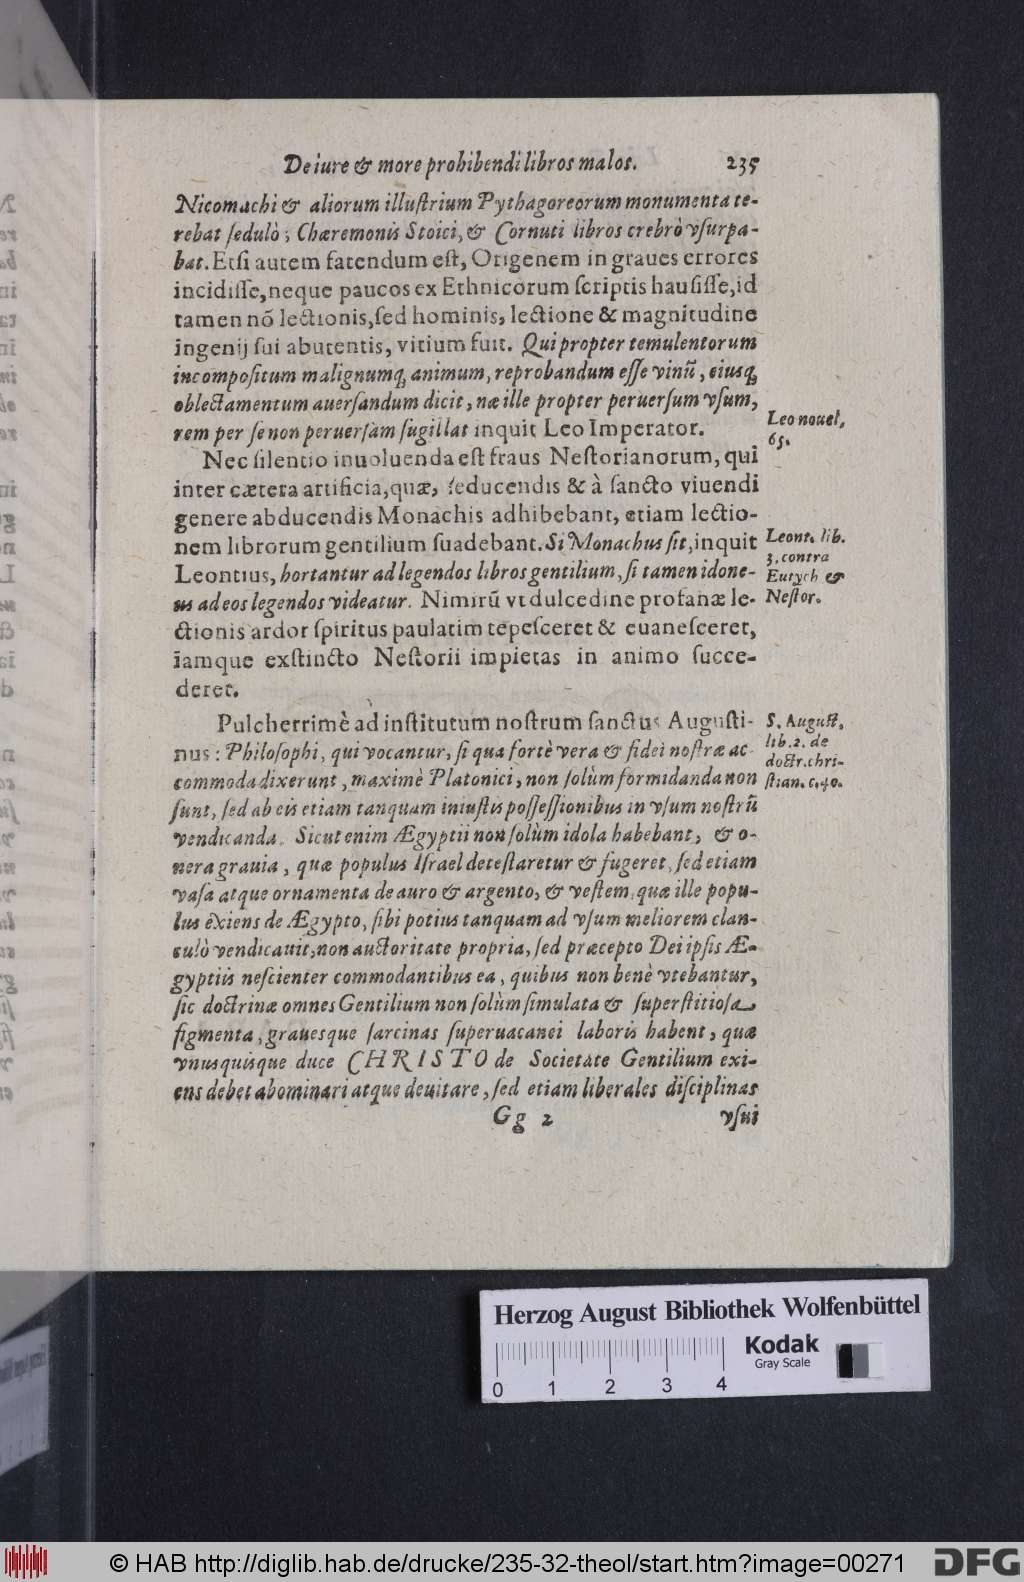 De iure & more prohibendi libros malos. 235
Nicomachi & aliorum illuſtrium Pythagoreorum monumenta te-
rebat ſedulò; Chæremonis Stoici, & Cornuti libros crebrò vſurpa-
bat. Etſi autem fatendum eſt, Origenem in graues errores
incidiſſe, neque paucos ex Ethnicorum ſcriptis hauſiſſe, id
tamen nõ lectionis, ſed hominis, lectione & magnitudine
ingenij ſui abutentis, vitium fuit. Qui propter temulentorum
incompoſitum malignumq; animum, reprobandum eſſe vinũ, eiusq;
oblectamentum auerſandum dicit, næ ille propter peruerſum vſum,
rem per ſe non peruerſam ſugillat inquit Leo Imperator.
Leo nouel,
65.
Nec ſilentio inuoluenda eſt fraus Neſtorianorum, qui
inter cætera artificia, quæ, ſeducendis & à ſancto viuendi
genere abducendis Monachis adhibebant, etiam lectio-
nem librorum gentilium ſuadebant. Si Monachus ſit, inquit
Leontius, hortantur ad legendos libros gentilium, ſi tamen idone-
us ad eos legendos videatur. Nimirũ vt dulcedine profanæ le-
ctionis ardor ſpiritus paulatim tepeſceret & euaneſceret,
iamque exſtincto Neſtorii impietas in animo ſucce-
deret.
Leont. lib.
3. contra
Eutych &
Neſtor.
Pulcherrimè ad inſtitutum noſtrum ſanctus Auguſti-
nus: Philoſophi, qui vocantur, ſi qua fortè vera & fidei noſtræ ac
commoda dixerunt, maximè Platonici, non ſolùm formidanda non
ſunt, ſed ab eis etiam tanquam iniuſtis poſſeſſionibus in vſum noſtrũ
vendicanda. Sicut enim Ægyptii non ſolùm idola habebant, & o-
nera grauia, quæ populus Iſrael deteſtaretur & fugeret, ſed etiam
vaſa atque ornamenta de auro & argento, & veſtem, quæ ille popu-
lus exiens de Ægypto, ſibi potius tanquam ad vſum meliorem clan-
culò vendicauit, non auctoritate propria, ſed præcepto Dei ipſis Æ-
gyptiis neſcienter commodantibus ea, quibus non benè vtebantur,
ſic doctrinæ omnes Gentilium non ſolùm ſimulata & ſuperſtitioſa
figmenta, graueſque ſarcinas ſuperuacanei laboris habent, quæ
vnuſquiſque duce CHRISTO de Societate Gentilium exi-
ens debet abominari atque deuitare, ſed etiam liberales diſciplinas
S. Auguſt,
lib. 2. de
doctr. chri-
ſtian. c. 40.
Gg 2 vſui
Herzog August Bibliothek Wolfenbüttel
Kodak
Gray Scale
0 1 2 3 4
© HAB http://diglib.hab.de/drucke/235-32-theol/start.htm?image=00271
DFG